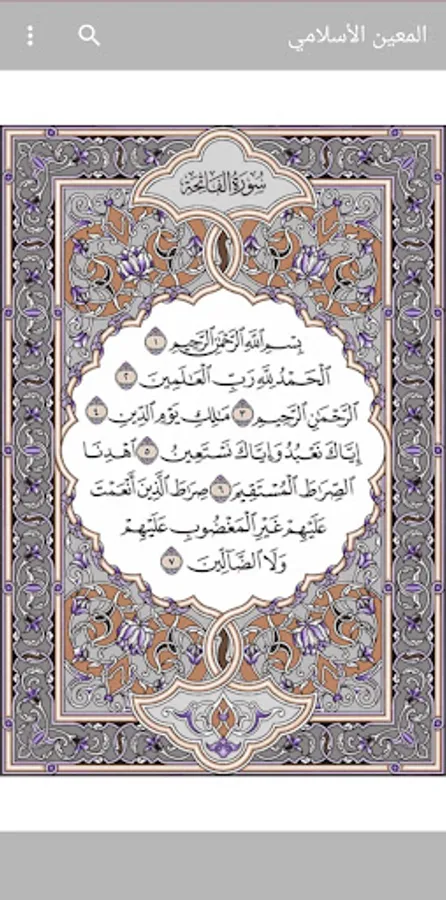 المعين الأسلامي
سُورَةُ الفَاتِحَةِ
بِسْمِ ٱللَّهِ ٱلرَّحْمَٰنِ ٱلرَّحِيمِ ١
ٱلْحَمْدُ لِلَّهِ رَبِّ ٱلْعَٰلَمِينَ ٢
ٱلرَّحْمَٰنِ ٱلرَّحِيمِ ٣ مَٰلِكِ يَوْمِ ٱلدِّينِ ٤
إِيَّاكَ نَعْبُدُ وَإِيَّاكَ نَسْتَعِينُ ٥ ٱهْدِنَا
ٱلصِّرَٰطَ ٱلْمُسْتَقِيمَ ٦ صِرَٰطَ ٱلَّذِينَ أَنْعَمْتَ
عَلَيْهِمْ غَيْرِ ٱلْمَغْضُوبِ عَلَيْهِمْ
وَلَا ٱلضَّآلِّينَ ٧